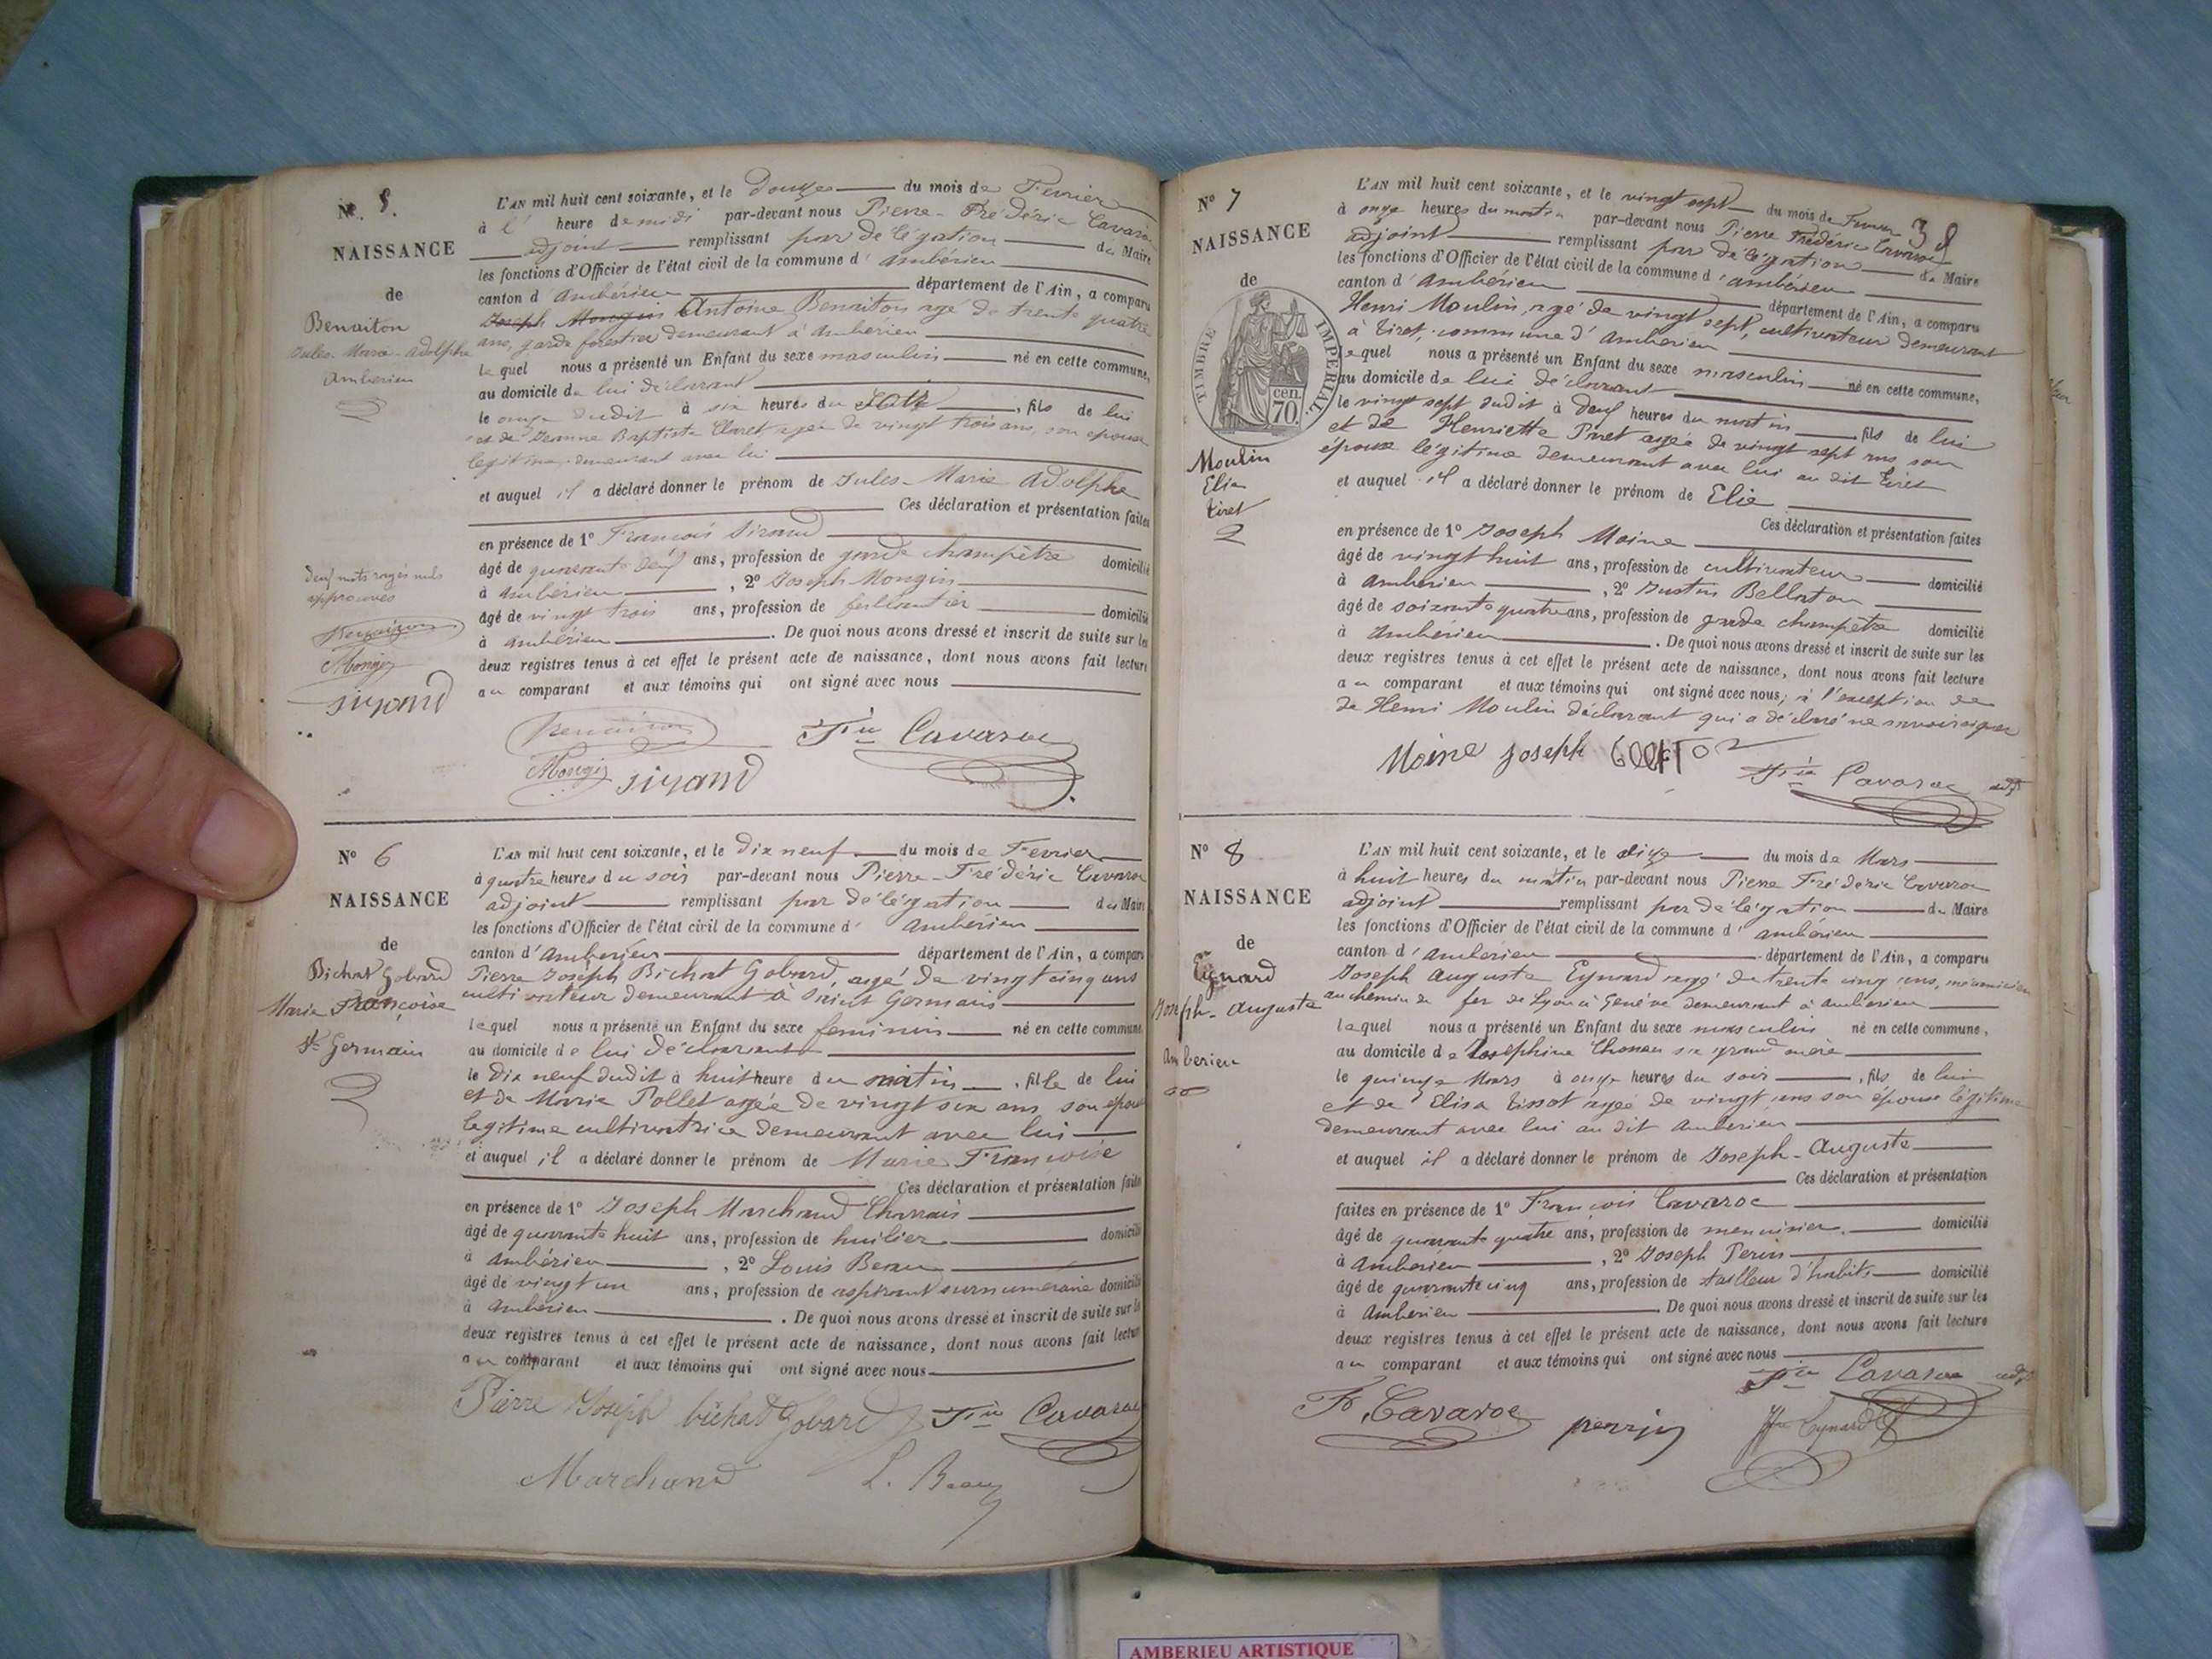 N° 5.
NAISSANCE
de
Benaiton
Jules-Marie-Adolphe
Ambérieu
L'AN mil huit cent soixante, et le douze du mois de Février
à l' heure de midi par-devant nous Pierre-Frédéric Cavaroc
adjoint remplissant par délégation du Maire
les fonctions d'Officier de l'état civil de la commune d'ambérieu
canton d'ambérieu département de l'Ain, a comparu
Joseph Mongin Antoine Benaiton agé de trente quatre
ans, garde forestier demeurant à ambérieu
lequel nous a présenté un Enfant du sexe masculin né en cette commune,
au domicile de lui déclarant
le onze dudit à six heures du , fils de lui
et de Jeanne Baptiste Claret, agée de vingt trois ans, son épouse
legitime demeurant avec lui
et auquel il a déclaré donner le prénom de Jules-Marie Adolphe
Ces déclaration et présentation faites
en présence de 1° François Sirand
âgé de quarante deux ans, profession de garde champêtre domicilié
à ambérieu , 2° Joseph Mongin
âgé de vingt trois ans, profession de ferblantier domicilié
à ambérieu . De quoi nous avons dressé et inscrit de suite sur les
deux registres tenus à cet effet le présent acte de naissance, dont nous avons fait lecture
au comparant et aux témoins qui ont signé avec nous
deux mots rayés nuls
approuvés
Benaiton
Mongin
sirand
Benaiton Fric Cavaroc
Mongin sirand
N° 6
NAISSANCE
de
Bichat Gobard
Marie Françoise
St Germain
L'AN mil huit cent soixante, et le dix neuf du mois de Fevrier
à quatre heures du soir par-devant nous Pierre-Frédéric Cavaroc
adjoint remplissant par délégation du Maire
les fonctions d'Officier de l'état civil de la commune d'ambérieu
canton d'ambérieu département de l'Ain, a comparu
Pierre Joseph Bichat Gobard, agé de vingt cinq ans
cultivateur demeurant à Saint Germain
lequel nous a présenté un Enfant du sexe feminin né en cette commune,
au domicile de lui déclarant
le dix neuf dudit à huit heure du matin , fille de lui
et de Marie Pollet agée de vingt six ans, son épouse
legitime cultivatrice demeurant avec lui
et auquel il a déclaré donner le prénom de Marie Françoise
Ces déclaration et présentation faites
en présence de 1° Joseph Marchand Charrais
âgé de quarante huit ans, profession de huilier domicilié
à ambérieu , 2° Louis Beau
âgé de vingt un ans, profession de aspirant surnuméraire domicilié
à ambérieu . De quoi nous avons dressé et inscrit de suite sur les
deux registres tenus à cet effet le présent acte de naissance, dont nous avons fait lecture
au comparant et aux témoins qui ont signé avec nous
Pierre Joseph bichat Gobard Fric Cavaroc
Marchand L. Beau
38
N° 7
NAISSANCE
de
TIMBRE IMPERIAL.
70 cen.
Moulin
Elie
Tiret
L'AN mil huit cent soixante, et le vingt sept du mois de Fevrier
à onze heures du matin par-devant nous Pierre Frédéric Cavaroc
adjoint remplissant par délégation du Maire
les fonctions d'Officier de l'état civil de la commune d'ambérieu
canton d'ambérieu département de l'Ain, a comparu
Henri Moulin, agé de vingt sept, cultivateur demeurant
à Tiret, commune d'ambérieu
lequel nous a présenté un Enfant du sexe masculin né en cette commune,
au domicile de lui déclarant
le vingt sept dudit à deux heures du matin fils de lui
et de Henriette agée de vingt sept ans son
épouse légitime demeurant avec lui au dit Tiret
et auquel il a déclaré donner le prénom de Elie
Ces déclaration et présentation faites
en présence de 1° Joseph Moine
âgé de vingt huit ans, profession de cultivateur domicilié
à ambérieu , 2° Justin Bellaton
âgé de soixante quatre ans, profession de garde champêtre domicilié
à ambérieu . De quoi nous avons dressé et inscrit de suite sur les
deux registres tenus à cet effet le présent acte de naissance, dont nous avons fait lecture
au comparant et aux témoins qui ont signé avec nous; à l'exception
de Henri Moulin déclarant qui a déclaré ne savoir signer
Moine joseph Fric Cavaroc adjt
N° 8
NAISSANCE
de
Eynard
Joseph-Auguste
Amberieu
L'AN mil huit cent soixante, et le dix du mois de Mars
à huit heures du matin par-devant nous Pierre Frédéric Cavaroc
adjoint remplissant par délégation du Maire
les fonctions d'Officier de l'état civil de la commune d'ambérieu
canton d'ambérieu département de l'Ain, a comparu
Joseph Auguste Eynard agé de trente cinq ans, mécanicien
au chemin de fer de Lyon à Genève demeurant à ambérieu
lequel nous a présenté un Enfant du sexe masculin né en cette commune,
au domicile de Josephine sa grand mère
le quinze Mars à onze heures du soir , fils de lui
et de Elisa Tissot agée de vingt ans son épouse légitime
demeurant avec lui au dit ambérieu
et auquel il a déclaré donner le prénom de Joseph-Auguste
Ces déclaration et présentation
faites en présence de 1° François Cavaroc
âgé de quarante quatre ans, profession de menuisier domicilié
à ambérieu , 2° Joseph Perrin
âgé de quarante cinq ans, profession de tailleur d'habits domicilié
à ambérieu . De quoi nous avons dressé et inscrit de suite sur les
deux registres tenus à cet effet le présent acte de naissance, dont nous avons fait lecture
au comparant et aux témoins qui ont signé avec nous
Fric Cavaroc adjt
Fs Cavaroc perrin Eynard
AMBERIEU ARTISTIQUE